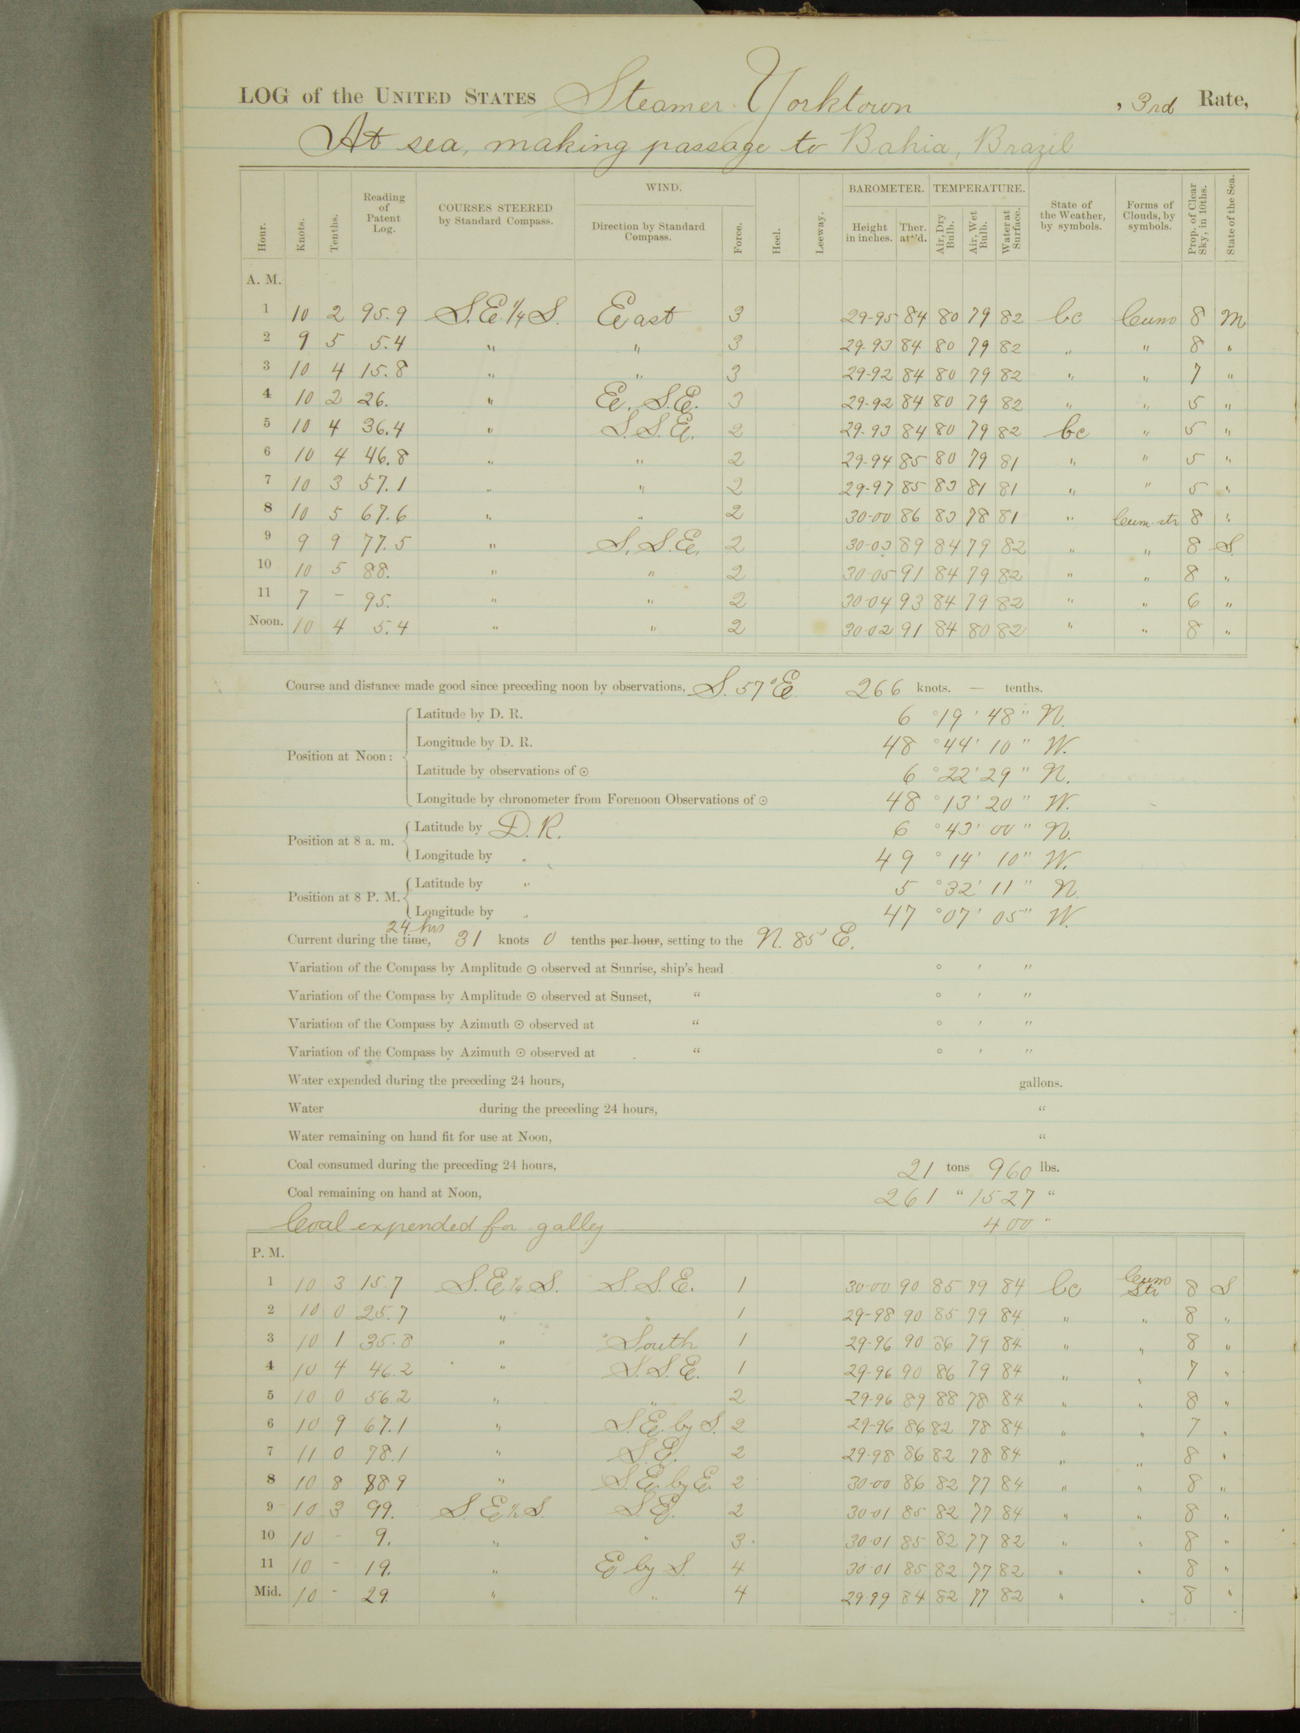 LOG of the UNITED STATES Steamer Yorktown , 3rd Rate,
At sea, making passage to Bahia, Brazil
Hour. Knots. Tenths. Reading of Patent Log. COURSES STEERED by Standard Compass. WIND. Direction by Standard Compass. Force. Heel. Leeway. BAROMETER. Height in inches. Ther. att'd. TEMPERATURE. Air, Dry Bulb. Air, Wet Bulb. Water at Surface. State of the Weather, by symbols. Forms of Clouds, by symbols. Prop. of Clear Sky, in 10ths. State of the Sea.
A. M.
1 10 2 95.9 S.E. 1/4 S. East 3 29-95 84 80 79 82 bc Cum 8 M
2 9 5 5.4 " " 3 29-93 84 80 79 82 " " 8 "
3 10 4 15.8 " " 3 29-92 84 80 79 82 " " 7 "
4 10 2 26. " E. S.E. 3 29-92 84 80 79 82 " " 5 "
5 10 4 36.4 " S.S.E. 2 29-93 84 80 79 82 bc " 5 "
6 10 4 46.8 " " 2 29-94 85 80 79 81 " " 5 "
7 10 3 57.1 " " 2 29-97 85 83 81 81 " " 5 "
8 10 5 67.6 " " 2 30-00 86 83 78 81 " Cum-str 8 "
9 9 9 77.5 " S. S.E. 2 30-03 89 84 79 82 " " 8 S.
10 10 5 88. " " 2 30-05 91 84 79 82 " " 8 "
11 7 - 95. " " 2 30-04 93 84 79 82 " " 6 "
Noon. 10 4 5.4 " " 2 30-02 91 84 80 82 " " 8 "
Course and distance made good since preceding noon by observations, S. 57° E. 266 knots. — tenths.
Position at Noon:
Latitude by D. R. 6 ° 19 ' 48 " N.
Longitude by D. R. 48 ° 44 ' 10 " W.
Latitude by observations of ☉ 6 ° 22 ' 29 " N.
Longitude by chronometer from Forenoon Observations of ☉ 48 ° 13 ' 20 " W.
Position at 8 a. m.
Latitude by D. R. 6 ° 43 ' 00 " N.
Longitude by " 49 ° 14 ' 10 " W.
Position at 8 P. M.
Latitude by " 5 ° 32 ' 11 " N
Longitude by " 47 ° 07 ' 05 " W.
24 hrs
Current during the time, 31 knots 0 tenths per hour, setting to the N. 85° E.
Variation of the Compass by Amplitude ☉ observed at Sunrise, ship's head ° ' "
Variation of the Compass by Amplitude ☉ observed at Sunset, " ° ' "
Variation of the Compass by Azimuth ☉ observed at " ° ' "
Variation of the Compass by Azimuth ☉ observed at " ° ' "
Water expended during the preceding 24 hours, gallons.
Water during the preceding 24 hours, "
Water remaining on hand fit for use at Noon, "
Coal consumed during the preceding 24 hours, 21 tons 960 lbs.
Coal remaining on hand at Noon, 261 " 1527 "
Coal expended for galley 400 "
P. M.
1 10 3 15.7 S.E. 1/4 S. S.S.E. 1 30-00 90 85 79 84 bc Cum Str 8 S
2 10 0 25.7 " " 1 29-98 90 85 79 84 " " 8 "
3 10 1 35.8 " South 1 29-96 90 86 79 84 " " 8 "
4 10 4 46.2 " S.S.E. 1 29-96 90 86 79 84 " " 7 "
5 10 0 56.2 " " 2 29-96 89 88 78 84 " " 8 "
6 10 9 67.1 " S.E. by S. 2 29-96 86 82 78 84 " " 7 "
7 11 0 78.1 " S.E. 2 29-98 86 82 78 84 " " 8 "
8 10 8 889 " S.E. by E. 2 30-00 86 82 77 84 " " 8 "
9 10 3 99. S.E. 1/2 S. S.E. 2 30-01 85 82 77 84 " " 8 "
10 10 - 9. " " 3 30-01 85 82 77 82 " " 8 "
11 10 - 19. " E by S. 4 30-01 85 82 77 82 " " 8 "
Mid. 10 - 29. " " 4 29-99 84 82 77 82 " " 8 "